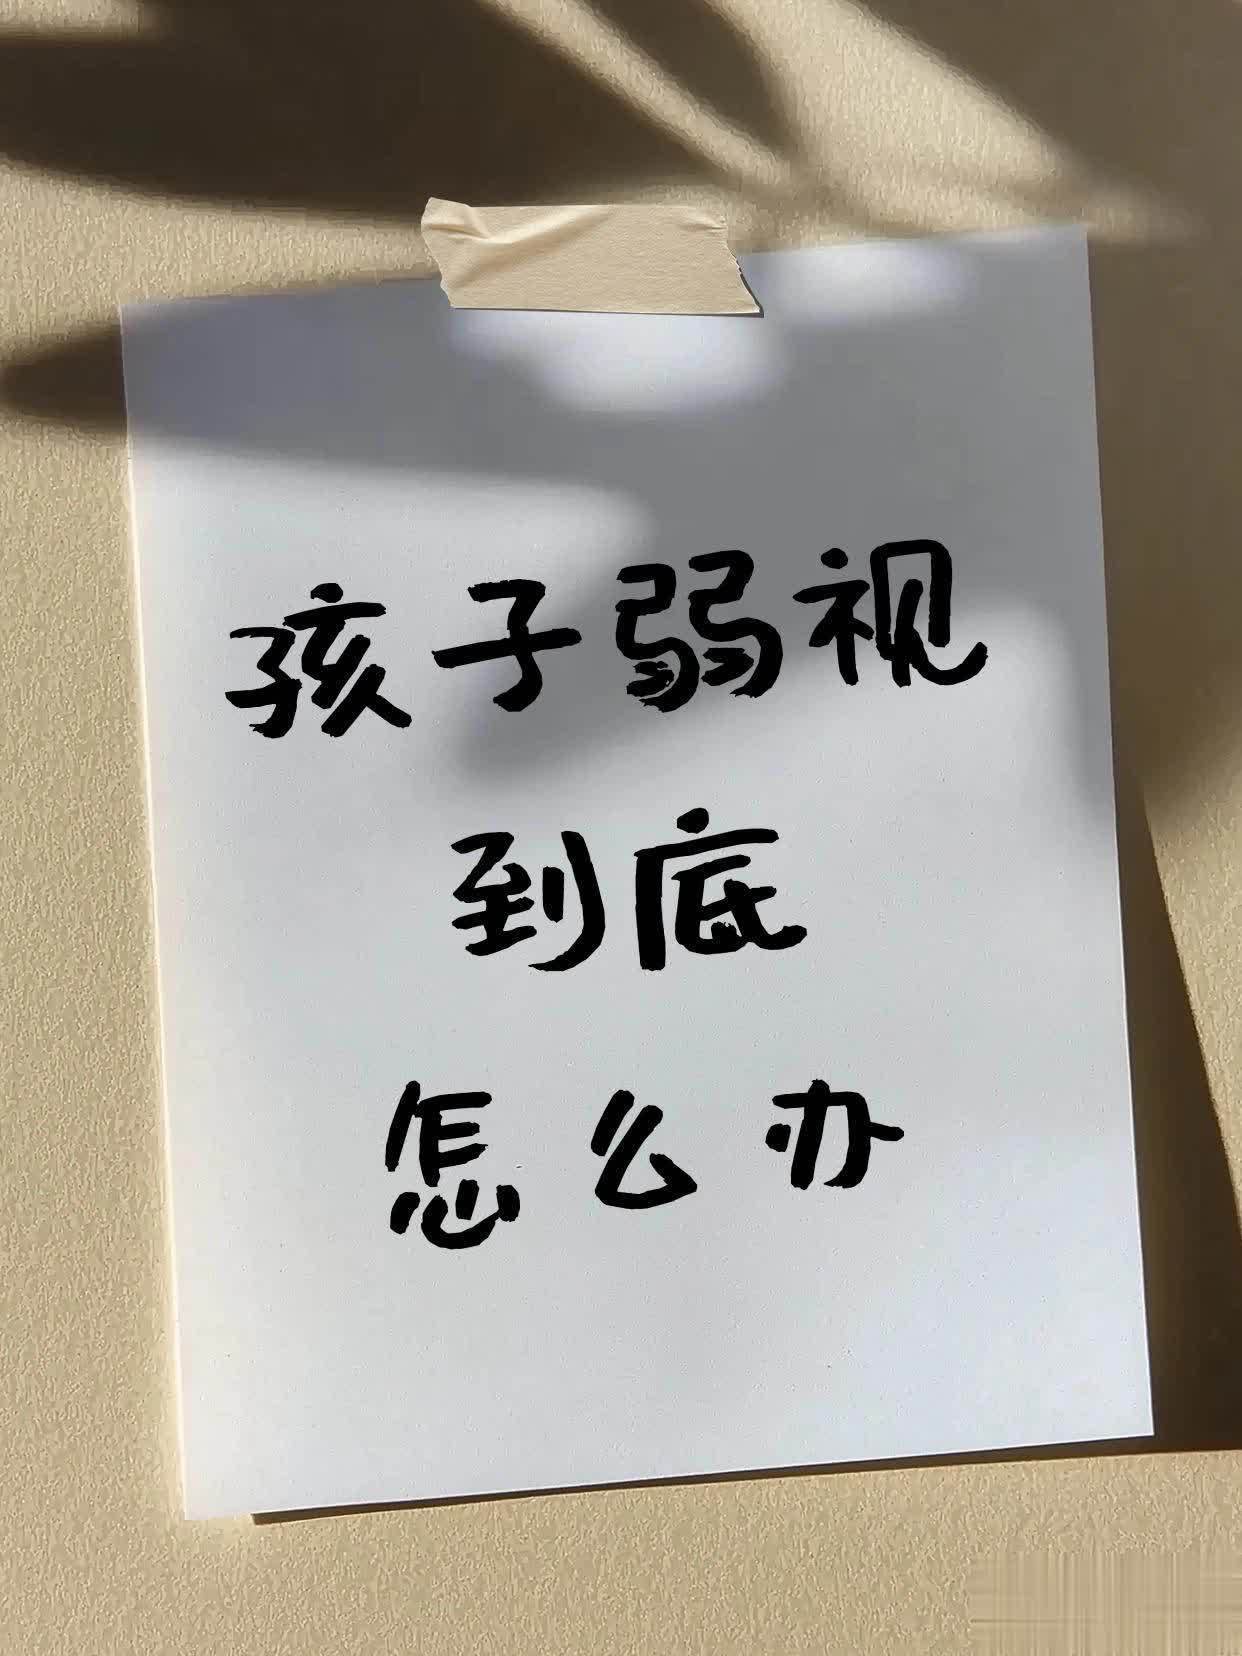 孩子弱视
到底
怎么办